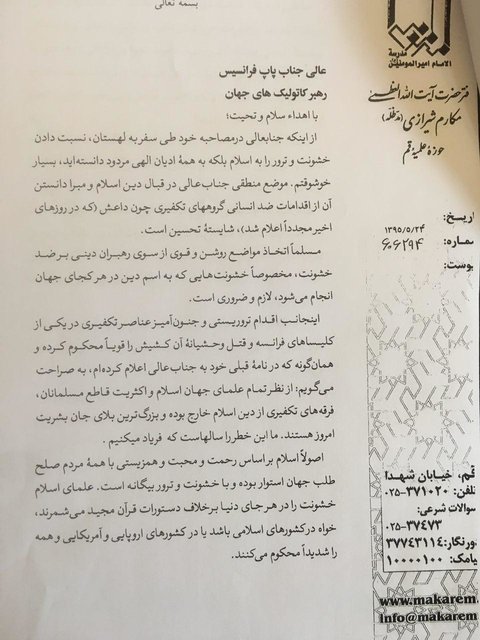 بسمه تعالی
مدرسة
الامام امیرالمومنین
دفتر حضرت آیت الله العظمی
مکارم شیرازی (مدظله)
حوزه علمیه قم
عالی جناب پاپ فرانسیس
رهبر کاتولیک های جهان
با اهداء سلام و تحیت؛
از اینکه جنابعالی درمصاحبه خود طی سفر به لهستان، نسبت دادن
خشونت و ترور را به اسلام بلکه به همهٔ ادیان الهی مردود دانسته‌اید، بسیار
خوشوقتم. موضع منطقی جناب‌عالی در قبال دین اسلام و مبرا دانستن
آن از اقدامات ضد انسانی گروههای تکفیری چون داعش (که در روزهای
اخیر مجدداً اعلام شد)، شایستهٔ تحسین است.
مسلماً اتخاذ مواضع روشن و قوی از سوی رهبران دینی بر ضد
خشونت، مخصوصاً خشونت‌هایی که به اسم دین در هر کجای جهان
انجام می‌شود، لازم و ضروری است.
اینجانب اقدام تروریستی و جنون‌آمیز عناصر تکفیری در یکی از
کلیساهای فرانسه و قتل وحشیانهٔ آن کشیش را قویاً محکوم کرده و
همان‌گونه که در نامهٔ قبلی خود به جناب‌عالی اعلام کرده‌ام، به صراحت
می‌گویم: از نظر تمام علمای جهان اسلام و اکثریت قاطع مسلمانان،
فرقه‌های تکفیری از دین اسلام خارج بوده و بزرگ‌ترین بلای جان بشریت
امروز هستند. ما این خطر را سالهاست که فریاد میکنیم.
اصولاً اسلام بر اساس رحمت و محبت و همزیستی با همهٔ مردم صلح
طلب جهان استوار بوده و با خشونت و ترور بیگانه است. علمای اسلام
خشونت را در هر جای دنیا برخلاف دستورات قرآن مجید می‌شمرند،
خواه درکشورهای اسلامی باشد یا در کشورهای اروپایی و آمریکایی و همه
را شدیداً محکوم می‌کنند.
اریخ:
۱۳۹۵/۵/۲۴
شماره:
۶۰۶۲۹۴
یوست:
قم، خیابان شهدا
تلفن: ۳۷۱۰۲۰-۰۲۵
سوالات شرعی:
۰۲۵-۳۷۴۷۳
ورنگار: ۳۷۷۴۳۱۱۴
یامک: ۱۰۰۰۰۱۰۰
www.makarem.
info@makarem